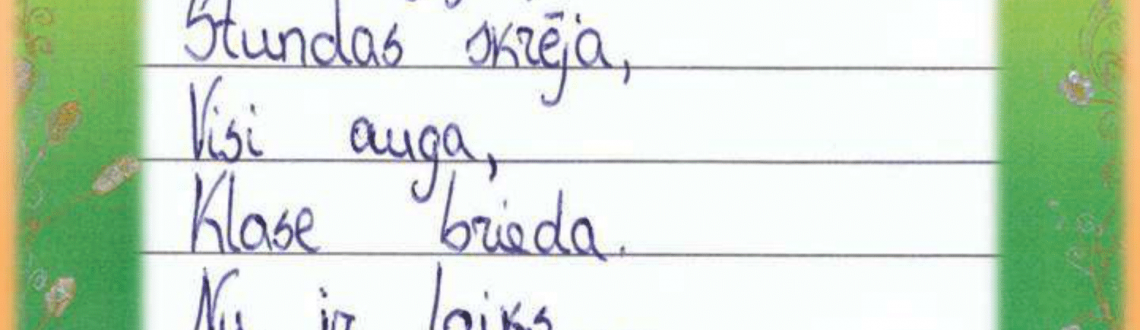 Stundas skrēja,
Visi auga,
Klase brieda.
Nu ir laiks